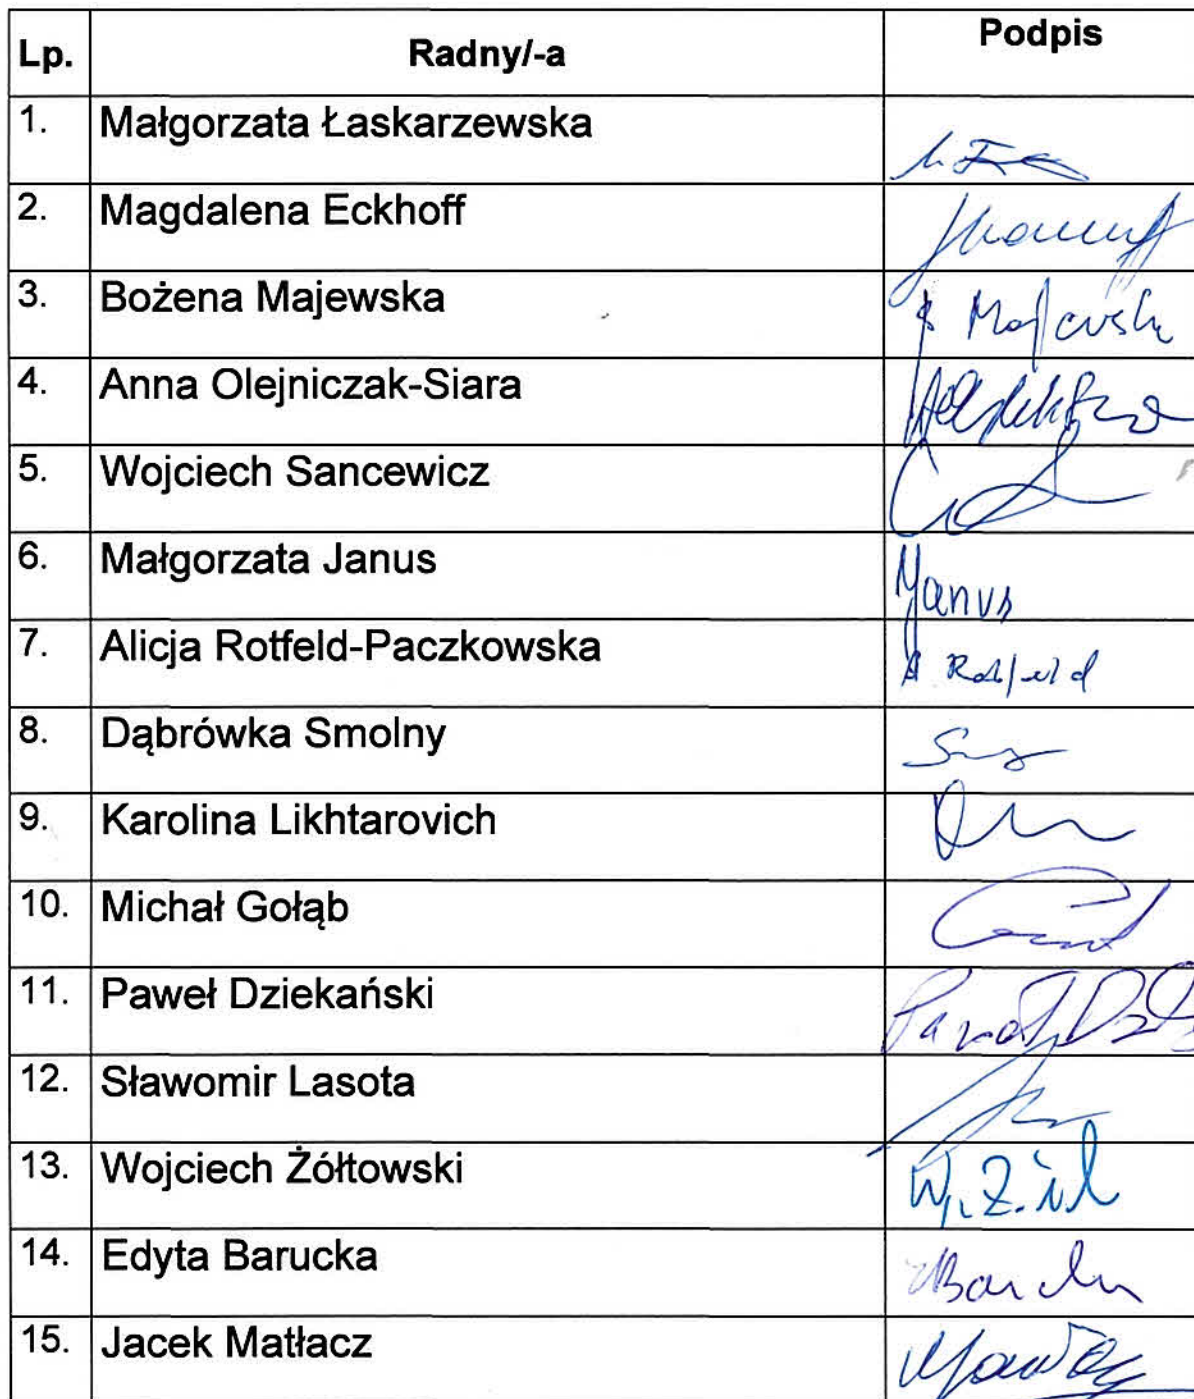 Lp. Radny/-a Podpis
1. Małgorzata Łaskarzewska
2. Magdalena Eckhoff
3. Bożena Majewska Majewska
4. Anna Olejniczak-Siara
5. Wojciech Sancewicz
6. Małgorzata Janus Janus
7. Alicja Rotfeld-Paczkowska A. Rotfeld
8. Dąbrówka Smolny
9. Karolina Likhtarovich
10. Michał Gołąb
11. Paweł Dziekański
12. Sławomir Lasota
13. Wojciech Żółtowski
14. Edyta Barucka
15. Jacek Matłacz